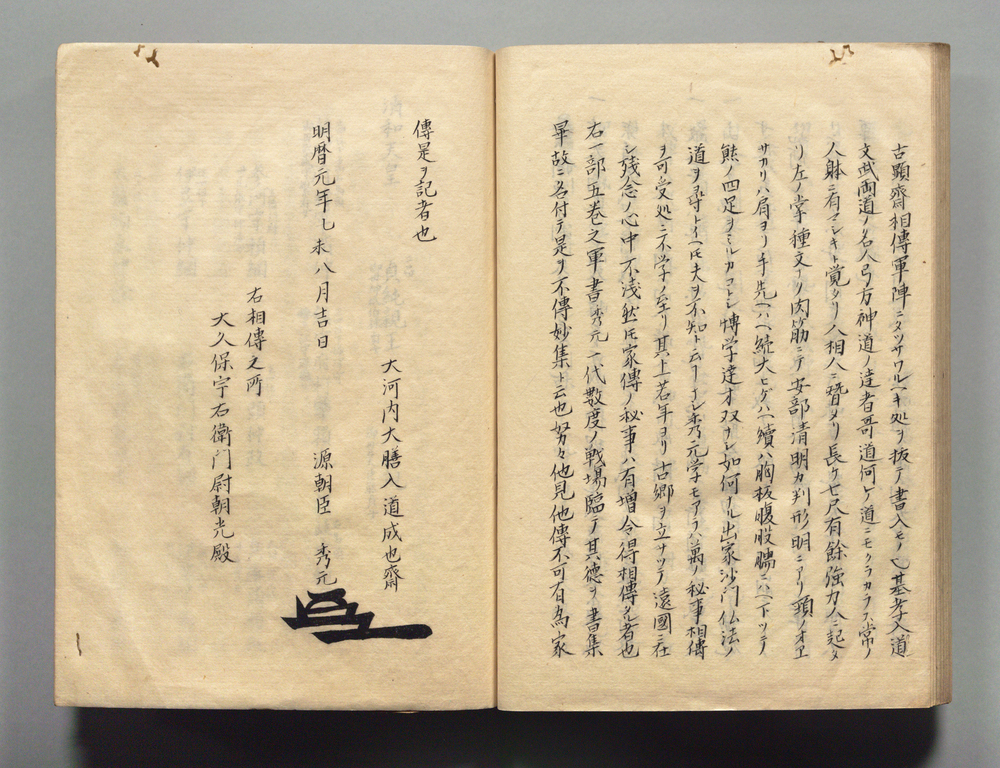 古顕齋相傳軍陣ニタツサワルヘキ処ヲ抜テ書入モノ也基孝入道
文武両道ノ名人弓方神道ノ達者哥道何ケ道ニモクラカラス常ノ
人躰ニ有マシキト覚タリ八相人ニ替タリ長ケ七尺有餘強力人ニ起タ
リ左ノ掌種文アリ肉筋ニテ安部清明カ判形明ニアリ頭ノオヱ
サカリハ肩ヨリ手先ヘハヘ続大ヒゲハヘ續ハ胸板腹股腨ニハヘ下ツテ
熊ノ四足ヲミルカコトシ博学達才双ナシ如何ナル出家沙門仏法ノ
道ヲ尋トイヘ圧夫ヲ不知ト云事ナシ秀元学モアラハ萬ノ秘事相傳
ヲ可受処ニ不学ノ至リ其上若年ヨリ古郷ヲ立サツテ遠國ニ在
シ残念ノ心中不浅然圧家傳ノ秘事ハ有増令得相傳タル者也
右一部五巻之軍書秀元一代数度ノ戦場臨テ其德ヲ書集
畢故ニ名付テ是ヲ不傳妙集ト云也努々他見他傳不可有為家
傳是ヲ記者也
大河内大膳入道成也齋
明暦元年乙未八月吉日 源朝臣 秀元
右相傳之所
大久保宇右衛門尉朝光殿